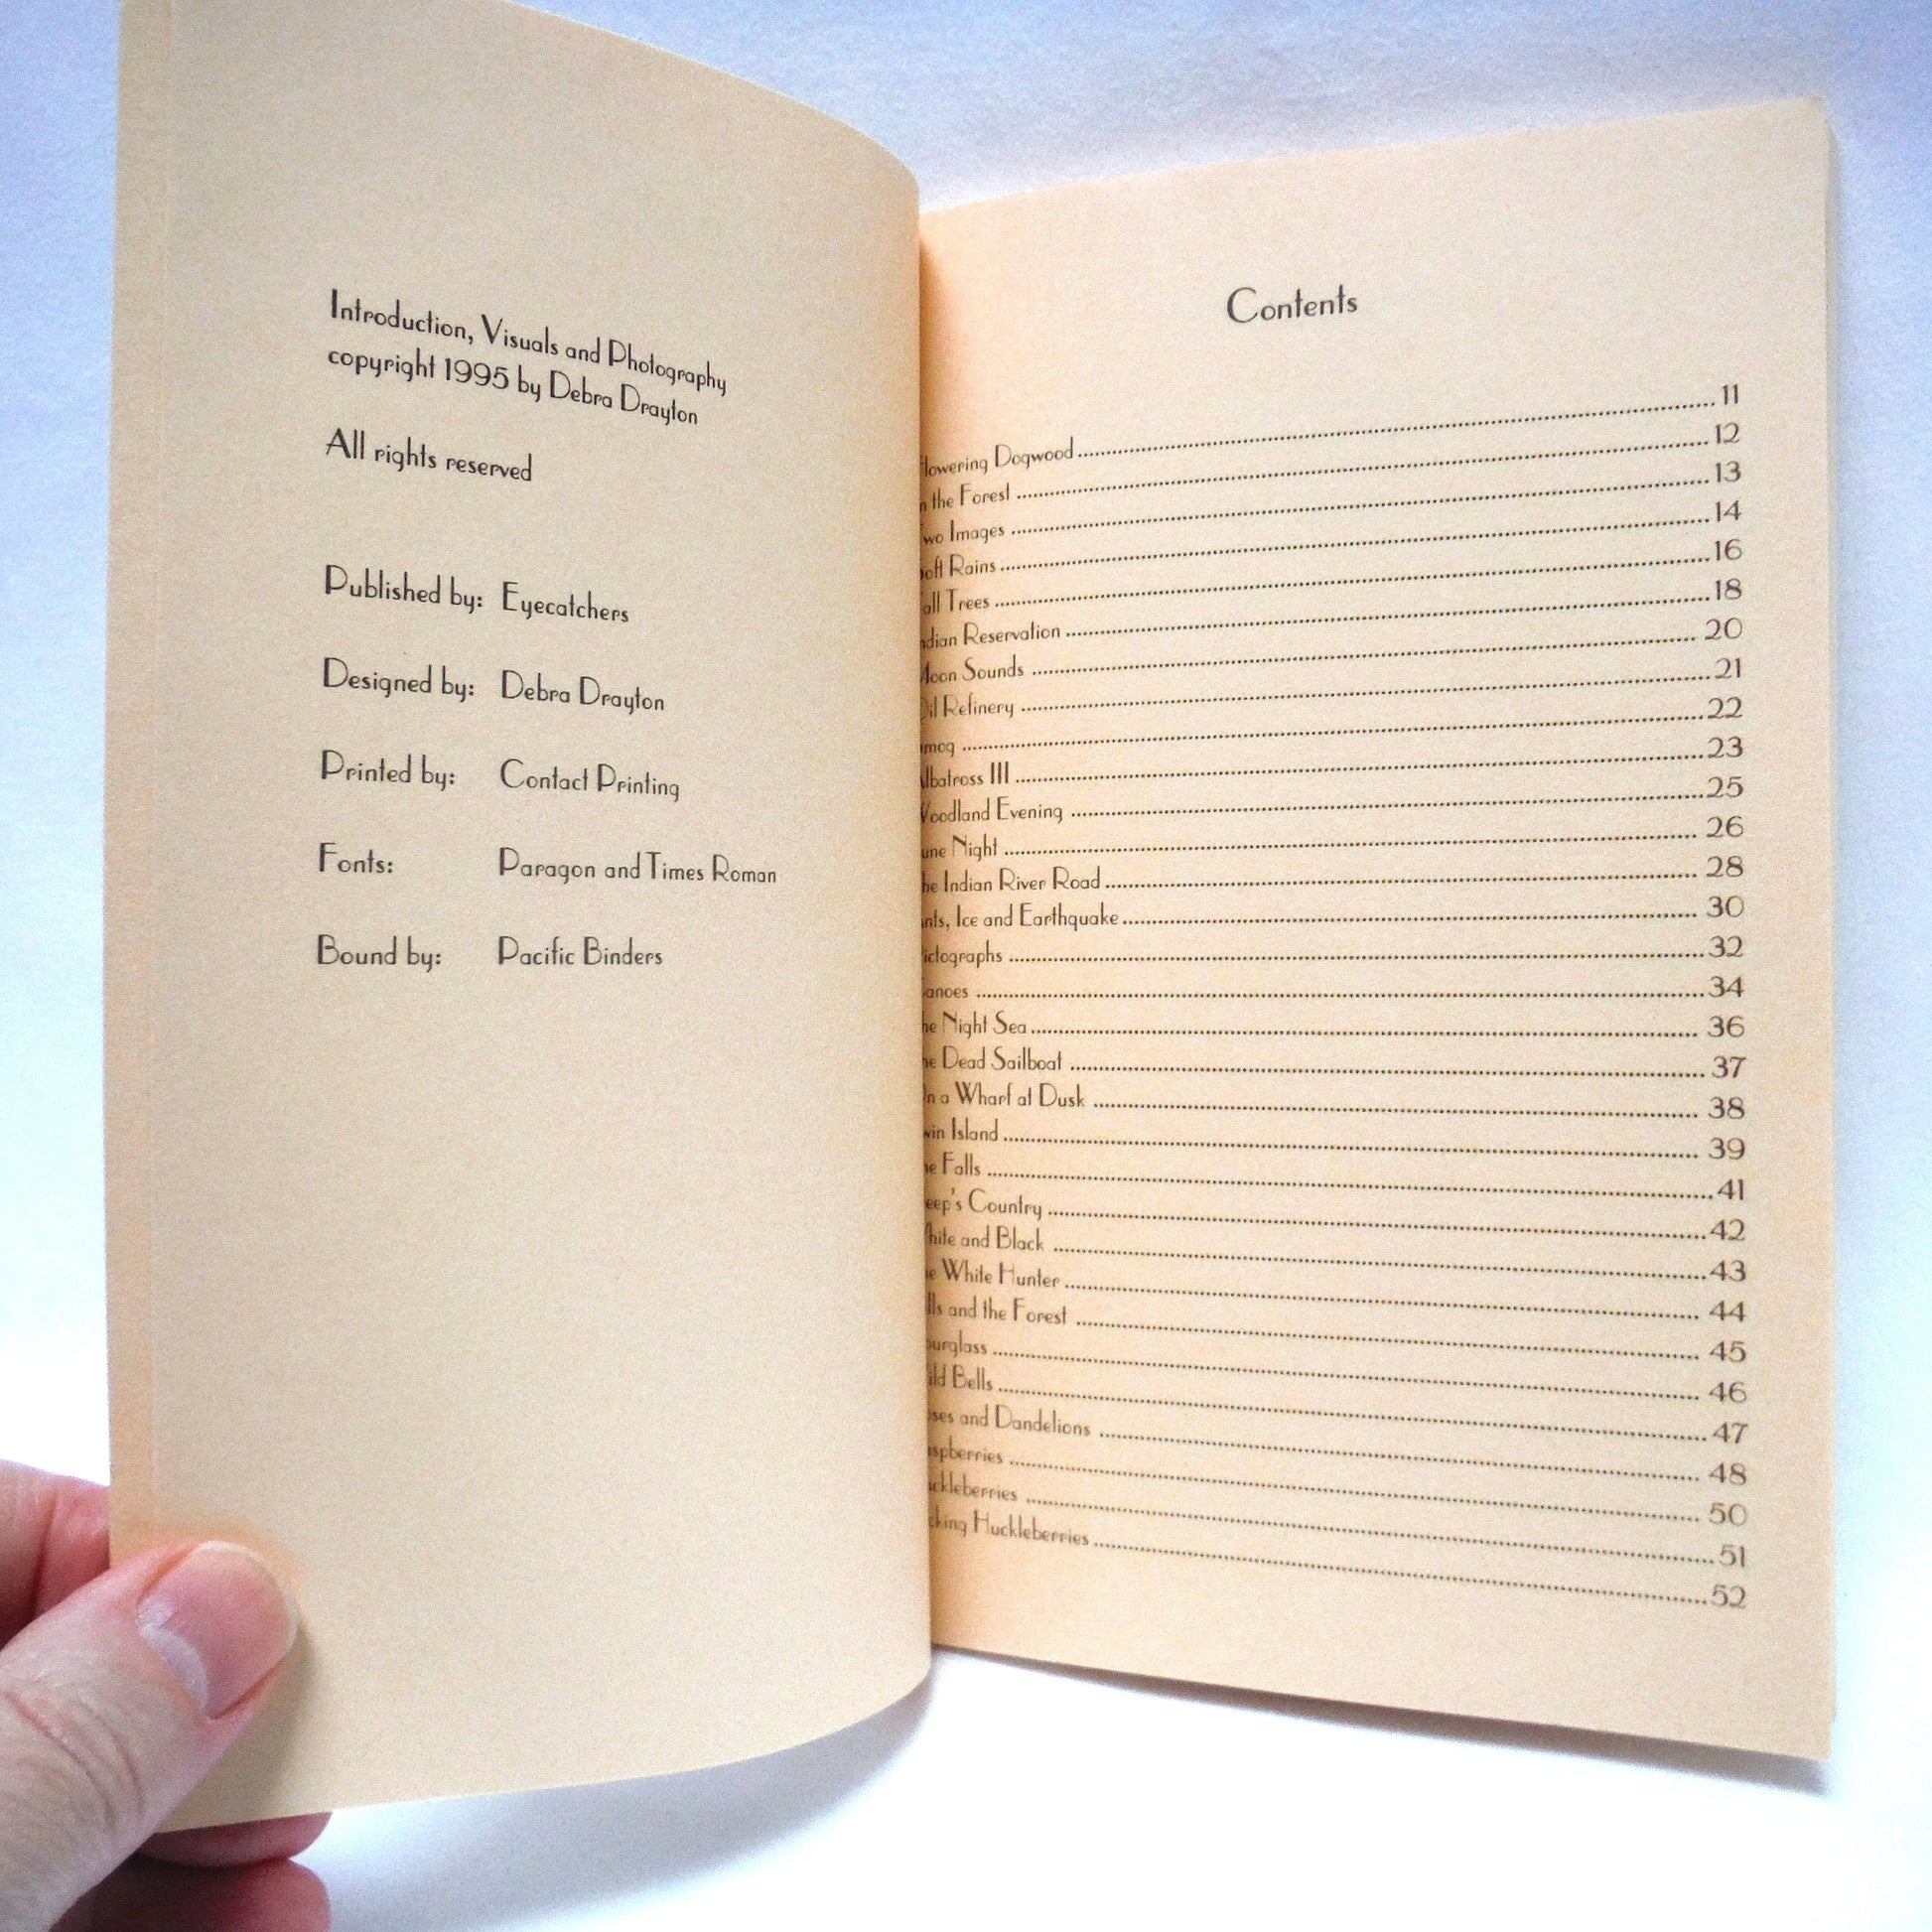 Introduction, Visuals and Photography
copyright 1995 by Debra Drayton
All rights reserved
Published by: Eyecatchers
Designed by: Debra Drayton
Printed by: Contact Printing
Fonts: Paragon and Times Roman
Bound by: Pacific Binders
Contents
lowering Dogwood 11
n the Forest 12
wo Images 13
oft Rains 14
all Trees 16
ndian Reservation 18
Moon Sounds 20
Oil Refinery 21
mog 22
lbatross III 23
Woodland Evening 25
une Night 26
he Indian River Road 28
nts, Ice and Earthquake 30
ictographs 32
anoes 34
he Night Sea 36
he Dead Sailboat 37
On a Wharf at Dusk 38
win Island 39
he Falls 41
eep's Country 42
hite and Black 43
e White Hunter 44
lls and the Forest 45
ourglass 46
ild Bells 47
oses and Dandelions 48
spberries 50
ckleberries 51
cking Huckleberries 52